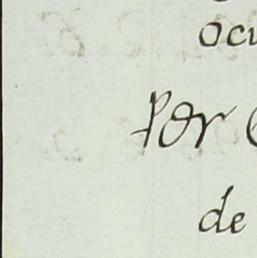 ocu
Por
de